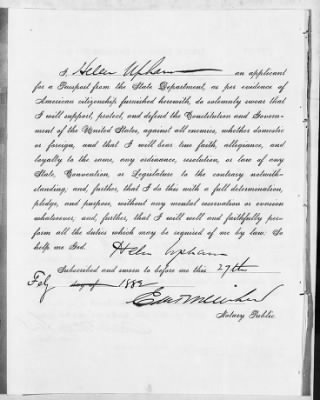 I, Helen Upham an applicant
for a Passport from the State Department, as per evidence of
American citizenship furnished herewith, do solemnly swear that
I will support, protect, and defend the Constitution and Govern-
ment of the United States, against all enemies, whether domestic
or foreign, and that I will bear true faith, allegiance, and
loyalty to the same, any ordinance, resolution, or law of any
State, Convention, or Legislature to the contrary notwith-
standing; and, further, that I do this with a full determination,
pledge, and purpose, without any mental reservation or evasion
whatsoever; and, further, that I will well and faithfully per-
form all the duties which may be required of me by law: So
help me God.
Helen Upham
Subscribed and sworn to before me this 27th
Feby day of 1882
Notary Public.